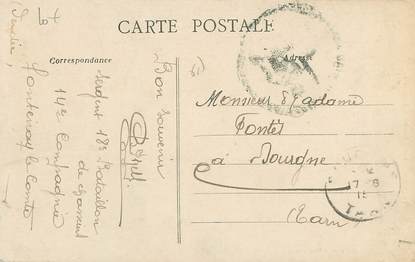 CARTE POSTALE
Correspondance
Adresse
Bon souvenir
sergent 18e Bataillon
de chasseur
14e Compagnie
Fontenay le Comte
Monsieur & Madame
Pontès
à Dourgne
Tarn